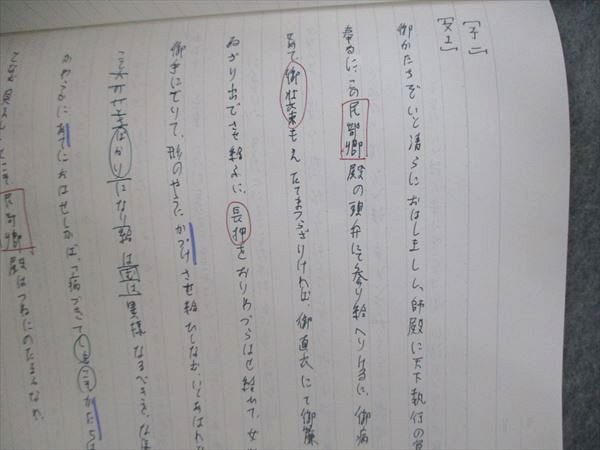 [予二]
[文1]
御かたちぞいと清らにおはしましし。帥殿に天下執行の宣
奉るに、この民部卿殿の頭弁にて参り給へりけるに、御病
せめて、御装束もえたてまつらざりければ、御直衣にて御簾
ゐざり出でさせ給ふに、長押をおりわづらはせ給ひて、女
御手にとりて、形のやうにかづけさせ給ひしなむいとあはれな
こと人のさばかりになり給はむは、異様なるべきを、なほ
かやうかにあてにおはせしかば、「病づきてしもこそかたちは
とこそ見えし」とこそ民部卿殿はつねにのたまふなれ。